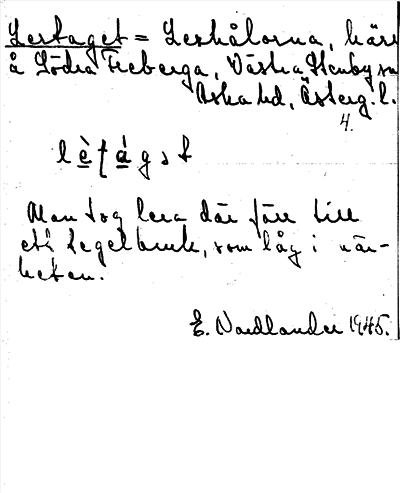 Lertaget = Lerhålorna, kärr
å Södra Freberga, Västra Stenby sn
Aska hd, Österg. l.
4.
Man tog lera där förr till
ett tegelbruk, som låg i när-
heten.
E. Nordlander 1945.